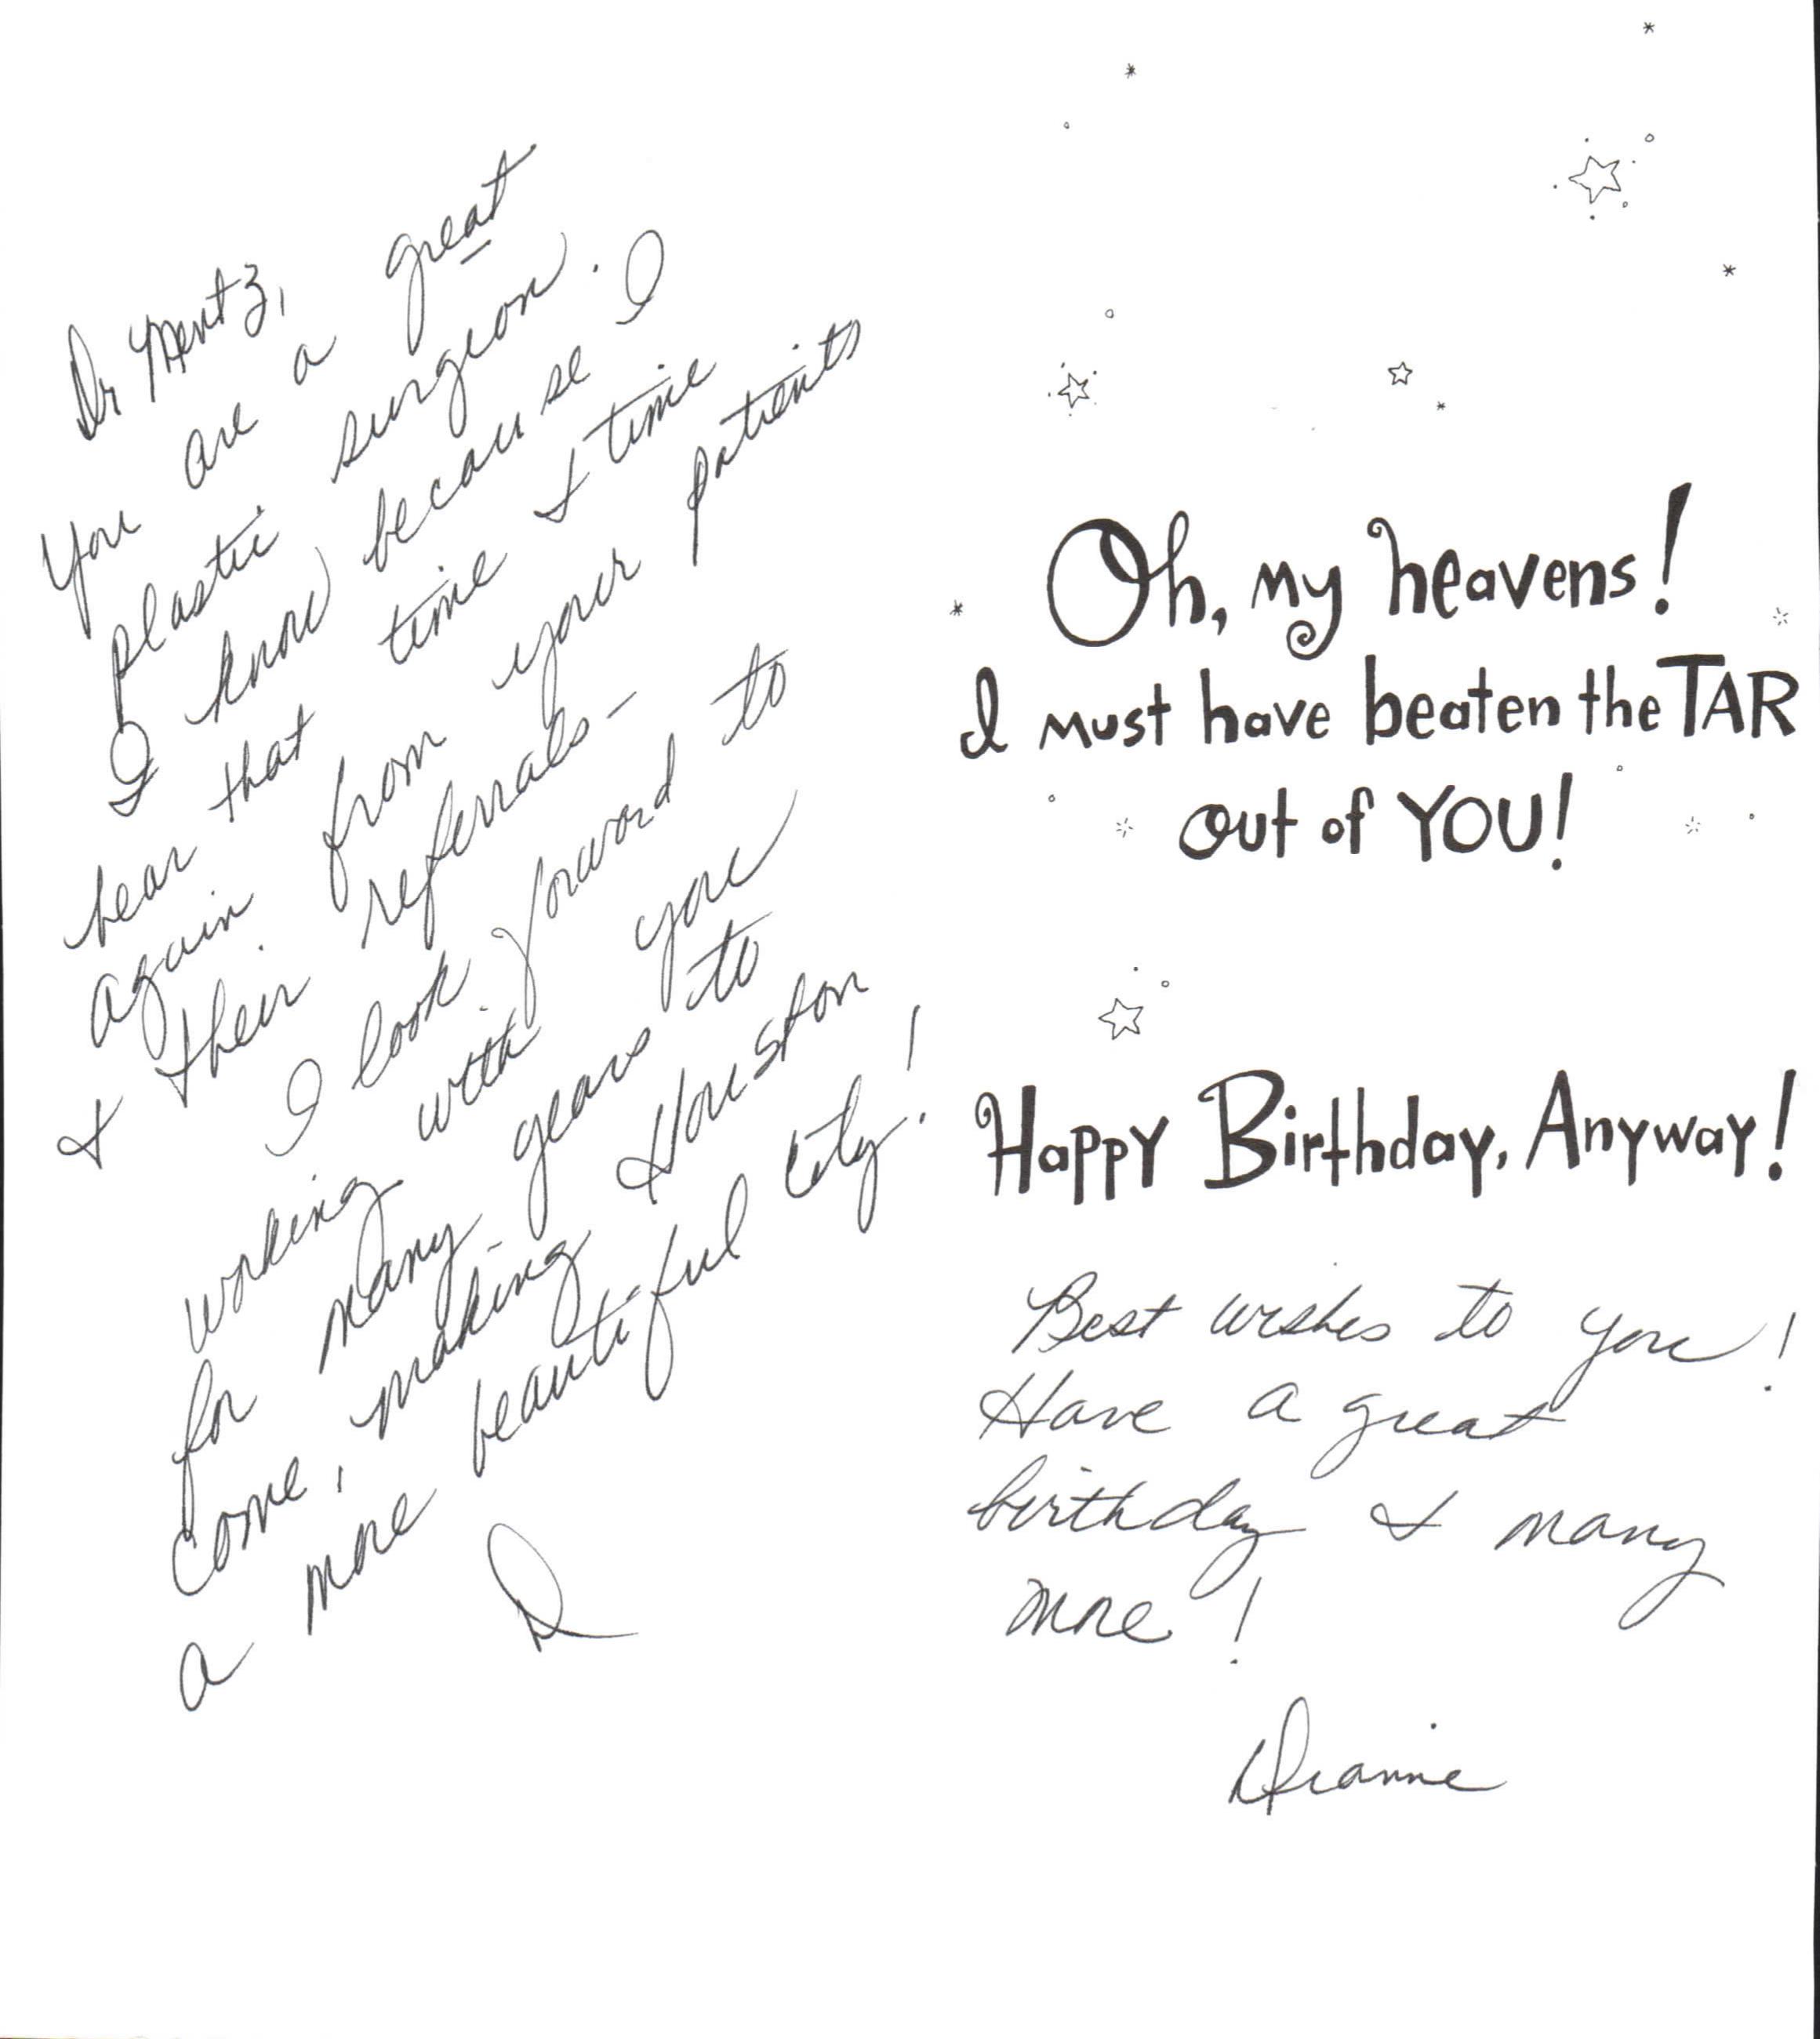 Dr Mentz,
You are a great
plastic surgeon. I
know because I
hear that time & time
again from your patients
& their referrals-
I look forward to
working with you
for many years to
come, making Houston
a more beautiful city!
D
Oh, my heavens!
I must have beaten the TAR
out of YOU!
Happy Birthday, Anyway!
Best wishes to you!
Have a great
birthday & many
more!
Dianne